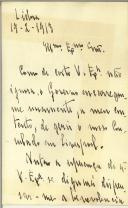 Lisboa
19-2-1913
Como de certo V. Ex.ª não
ignora, o Governo encarregou-
me novamente, a meu con-
tento, de gerir o nosso Con-
sulado em Liverpool.
Nutro a esperança de q.
V. Ex.ª se dignará dispen-
sar-me a benevolencia